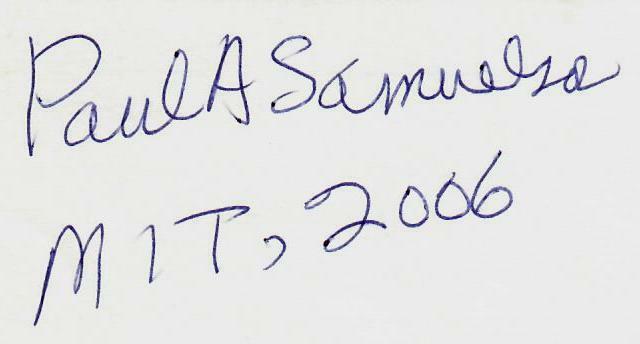 Paul A Samuelson
MIT, 2006